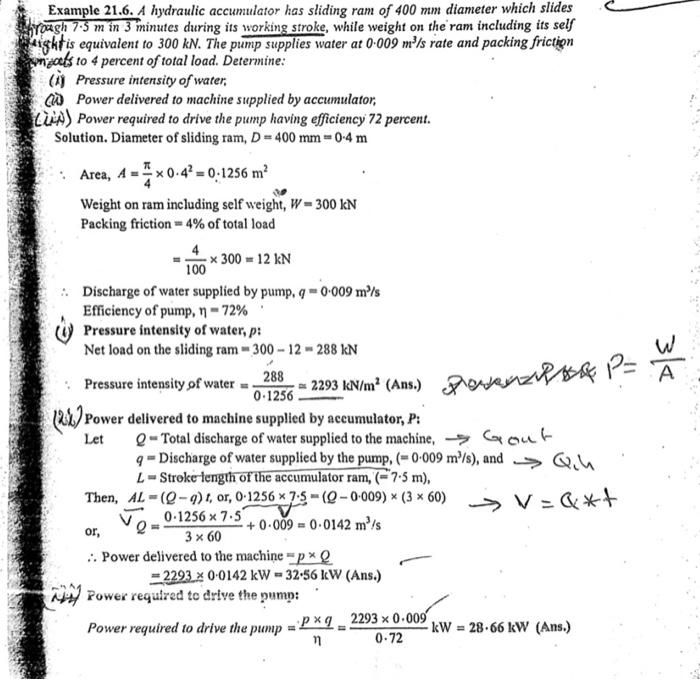 Example 21.6. A hydraulic accumulator has sliding ram of 400 mm diameter which slides
through 7·5 m in 3 minutes during its working stroke, while weight on the ram including its self
weight is equivalent to 300 kN. The pump supplies water at 0·009 m³/s rate and packing friction
to 4 percent of total load. Determine:
(i) Pressure intensity of water,
(ii) Power delivered to machine supplied by accumulator,
(iii) Power required to drive the pump having efficiency 72 percent.
Solution. Diameter of sliding ram, D = 400 mm = 0·4 m
∴ Area, A = π/4 × 0·4² = 0·1256 m²
Weight on ram including self weight, W = 300 kN
Packing friction = 4% of total load
= 4/100 × 300 = 12 kN
∴ Discharge of water supplied by pump, q = 0·009 m³/s
Efficiency of pump, η = 72%
(i) Pressure intensity of water, p:
Net load on the sliding ram = 300 – 12 = 288 kN
∴ Pressure intensity of water = 288/0·1256 = 2293 kN/m² (Ans.) P = W/A
(ii) Power delivered to machine supplied by accumulator, P:
Let Q = Total discharge of water supplied to the machine, → Qout
q = Discharge of water supplied by the pump, (= 0·009 m³/s), and → Qin
L = Stroke length of the accumulator ram, (= 7·5 m),
Then, AL = (Q – q) t, or, 0·1256 × 7·5 = (Q – 0·009) × (3 × 60) → V = Q * t
V V
or, Q = 0·1256 × 7·5/3 × 60 + 0·009 = 0·0142 m³/s
∴ Power delivered to the machine = p × Q
= 2293 × 0·0142 kW = 32·56 kW (Ans.)
(iii) Power required to drive the pump:
Power required to drive the pump = p × q/η = 2293 × 0·009/0·72 kW = 28·66 kW (Ans.)